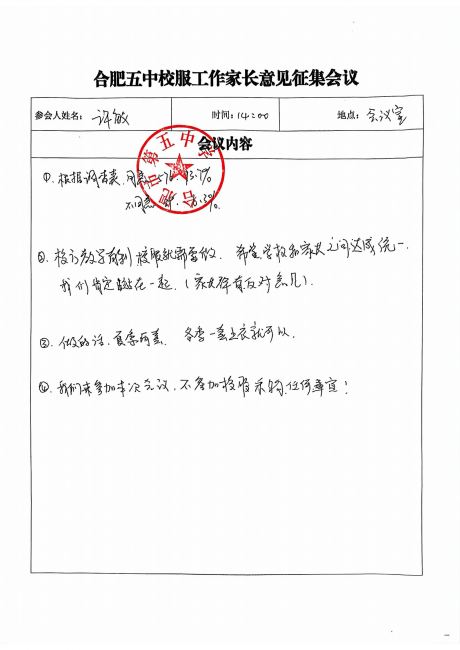 合肥五中校服工作家长意见征集会议
参会人姓名: 许敏 时间: 14:00 地点: 会议室
会议内容
合肥市第五中学
①. 根据调查表. 同意 93.7%
不同意
②. 校服就需要做. 希望学校和家长之间达成统一.
我们肯定站在一起. (家长群有反对意见).
③. 做的话. 夏季两套. 冬季一套上衣就可以.
④. 我们来参加本次会议. 不参加校服采购任何事宜!